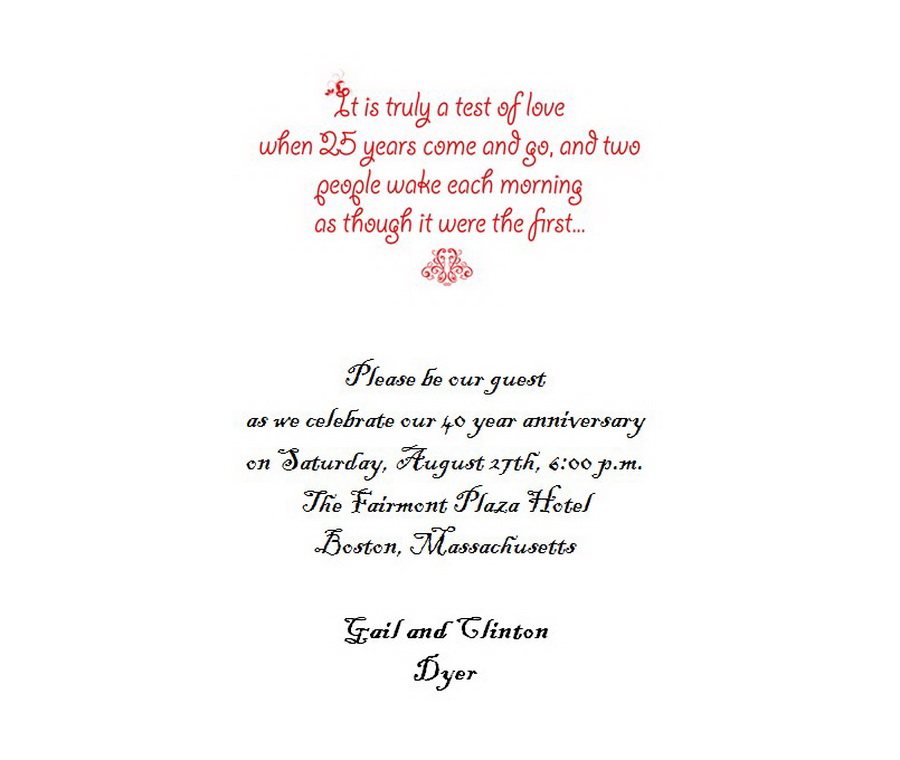 It is truly a test of love
when 25 years come and go, and two
people wake each morning
as though it were the first...
Please be our guest
as we celebrate our 40 year anniversary
on Saturday, August 27th, 6:00 p.m.
The Fairmont Plaza Hotel
Boston, Massachusetts
Gail and Clinton
Dyer